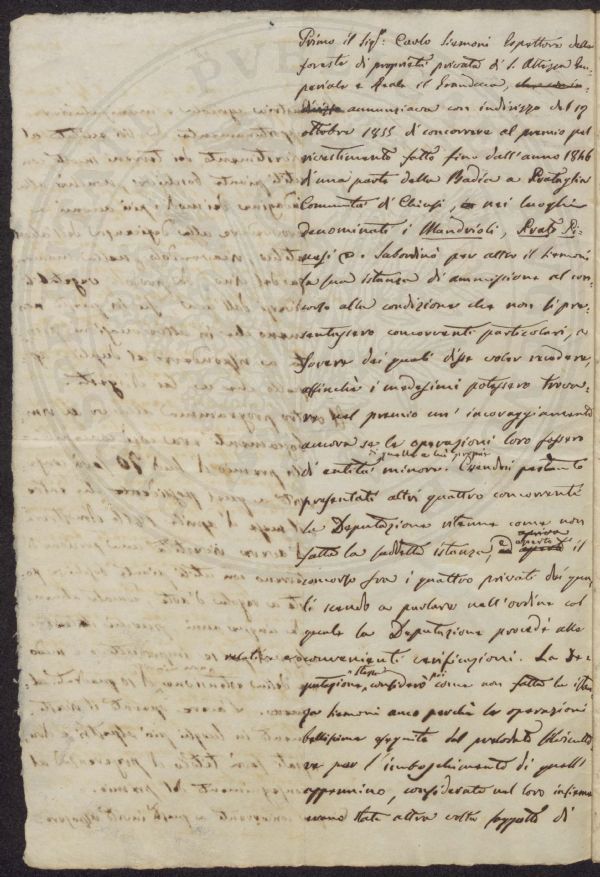 Primo il Sigʳ. Carlo Siemoni Ispettore delle
foreste di proprietà privata di S. Altezza Im-
periale e Reale il Granduca,
annunziava con indirizzo del 17
ottobre 1855 di concorrere al premio pel
rivestimento fatto fino dall'anno 1846
d'una parte della Badia a Prataglia
Comunità di Chiusi, nei luoghi
denominati i Mandrioli, Prato
Subordinò per altro il Siemoni
la sua istanza di ammissione al con-
corso alla condizione che non si pre-
sentassero concorrenti particolari, a
favore dei quali disse voler recedere,
affinchè i medesimi potessero trova-
re nel premio un' incoraggiamento
ancora se le operazioni loro fossero
di entità minore. Essendosi pertanto
presentati altri quattro concorrenti
la Deputazione ritenne come non
fatta la suddetta istanza, ed aperto il
concorso fra i quattro privati dei qua-
li scendo a parlare nell'ordine col
quale la Deputazione procedè alle
relative e convenienti verificazioni. La De-
putazione stessa considerò poi come non fatta la istan-
za Siemoni anco perchè le operazioni
bellissime eseguite dal prelodato
per l'imboschimento di quell'
appennino, considerate nel loro insieme
erano state altra volta soggetto di